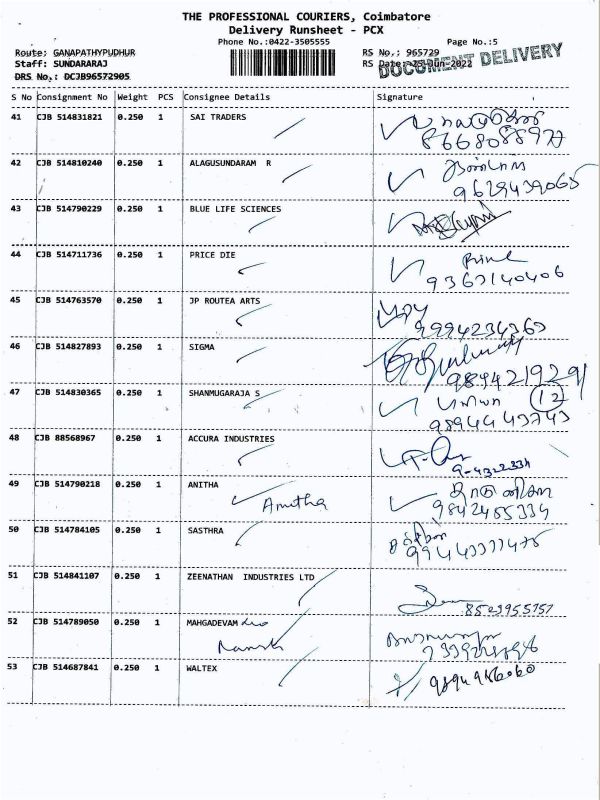 THE PROFESSIONAL COURIERS, Coimbatore
Delivery Runsheet - PCX
Phone No.:0422-3505555
Page No.:5
Route: GANAPATHYPUDHUR
RS No.: 965729
Staff: SUNDARARAJ
RS Date: 25-Jun-2022
DOCUMENT DELIVERY
DRS No.: DCJB96572905
S No Consignment No Weight PCS Consignee Details Signature
41 CJB 514831821 0.250 1 SAI TRADERS
8668088977
42 CJB 514810240 0.250 1 ALAGUSUNDARAM R
9629439065
43 CJB 514790229 0.250 1 BLUE LIFE SCIENCES
44 CJB 514711736 0.250 1 PRICE DIE
9367140406
45 CJB 514763570 0.250 1 JP ROUTEA ARTS
9994234363
46 CJB 514827893 0.250 1 SIGMA
9894219291
47 CJB 514830365 0.250 1 SHANMUGARAJA S
12
9894443743
48 CJB 88568967 0.250 1 ACCURA INDUSTRIES
49 CJB 514790218 0.250 1 ANITHA
Anitha
9842455334
50 CJB 514784105 0.250 1 SASTHRA
51 CJB 514841107 0.250 1 ZEENATHAN INDUSTRIES LTD
8523955757
52 CJB 514789050 0.250 1 MAHGADEVAM
53 CJB 514687841 0.250 1 WALTEX
9894956060